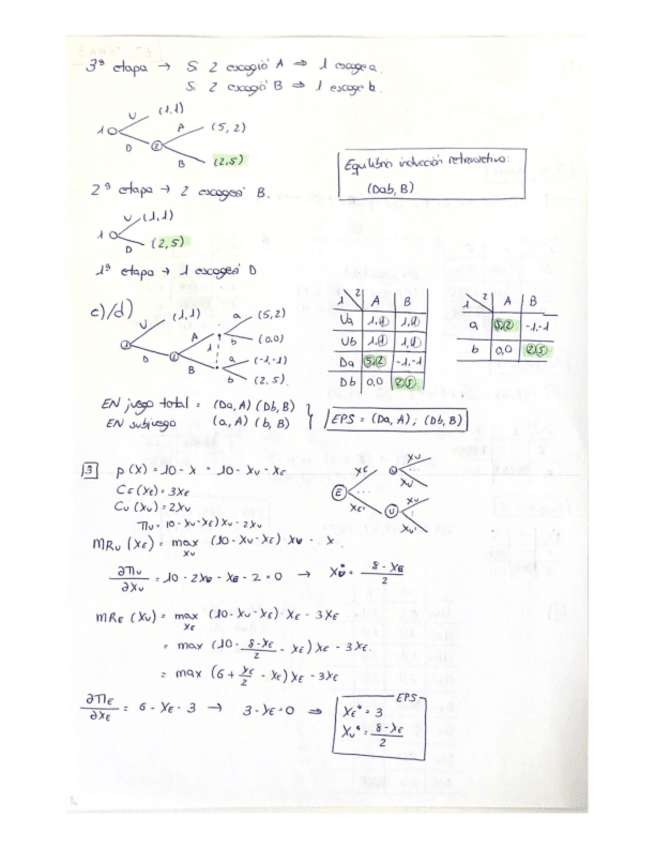 3ª etapa → Si 2 escogió A ⇒ 1 escoge a.
Si 2 escogió B ⇒ 1 escoge b.
1 U (1,1)
D 2 A (5,2)
B (2,5)
Equilibrio inducción retroactiva:
(Dab, B)
2ª etapa → 2 escogerá B.
1 U (1,1)
D (2,5)
1ª etapa → 1 escogerá D
c)/d)
1 U (1,1)
D 2 A 1 a (5,2)
b (0,0)
B a (-1,-1)
b (2,5).
1 2 A B
Ua 1,1 1,1
Ub 1,1 1,1
Da 5,2 -1,-1
Db 0,0 2,5
1 2 A B
a 5,2 -1,-1
b 0,0 2,5
EN juego total = (Da, A) (Db, B)
EN subjuego (a, A) (b, B)
EPS = (Da, A) ; (Db, B)
3 p(X) = 10 - X = 10 - XU - XE
CE(XE) = 3XE
CU(XU) = 2XU
ΠU = (10 - XU - XE)XU - 2XU
E XE U XU
XU'
XE' U XU
XU'
MRU (XE) = max (10 - XU - XE) · XU - X
XU
∂ΠU/∂XU = 10 - 2XU - XE - 2 = 0 → XU* = (8 - XE)/2
MRE (XU) = max (10 - XU - XE) XE - 3XE
XE
= max (10 - (8 - XE)/2 - XE) XE - 3XE.
= max (6 + XE/2 - XE) XE - 3XE
∂ΠE/∂XE = 6 - XE - 3 → 3 - XE = 0 ⇒
EPS
XE* = 3
XU* = (8 - XE)/2